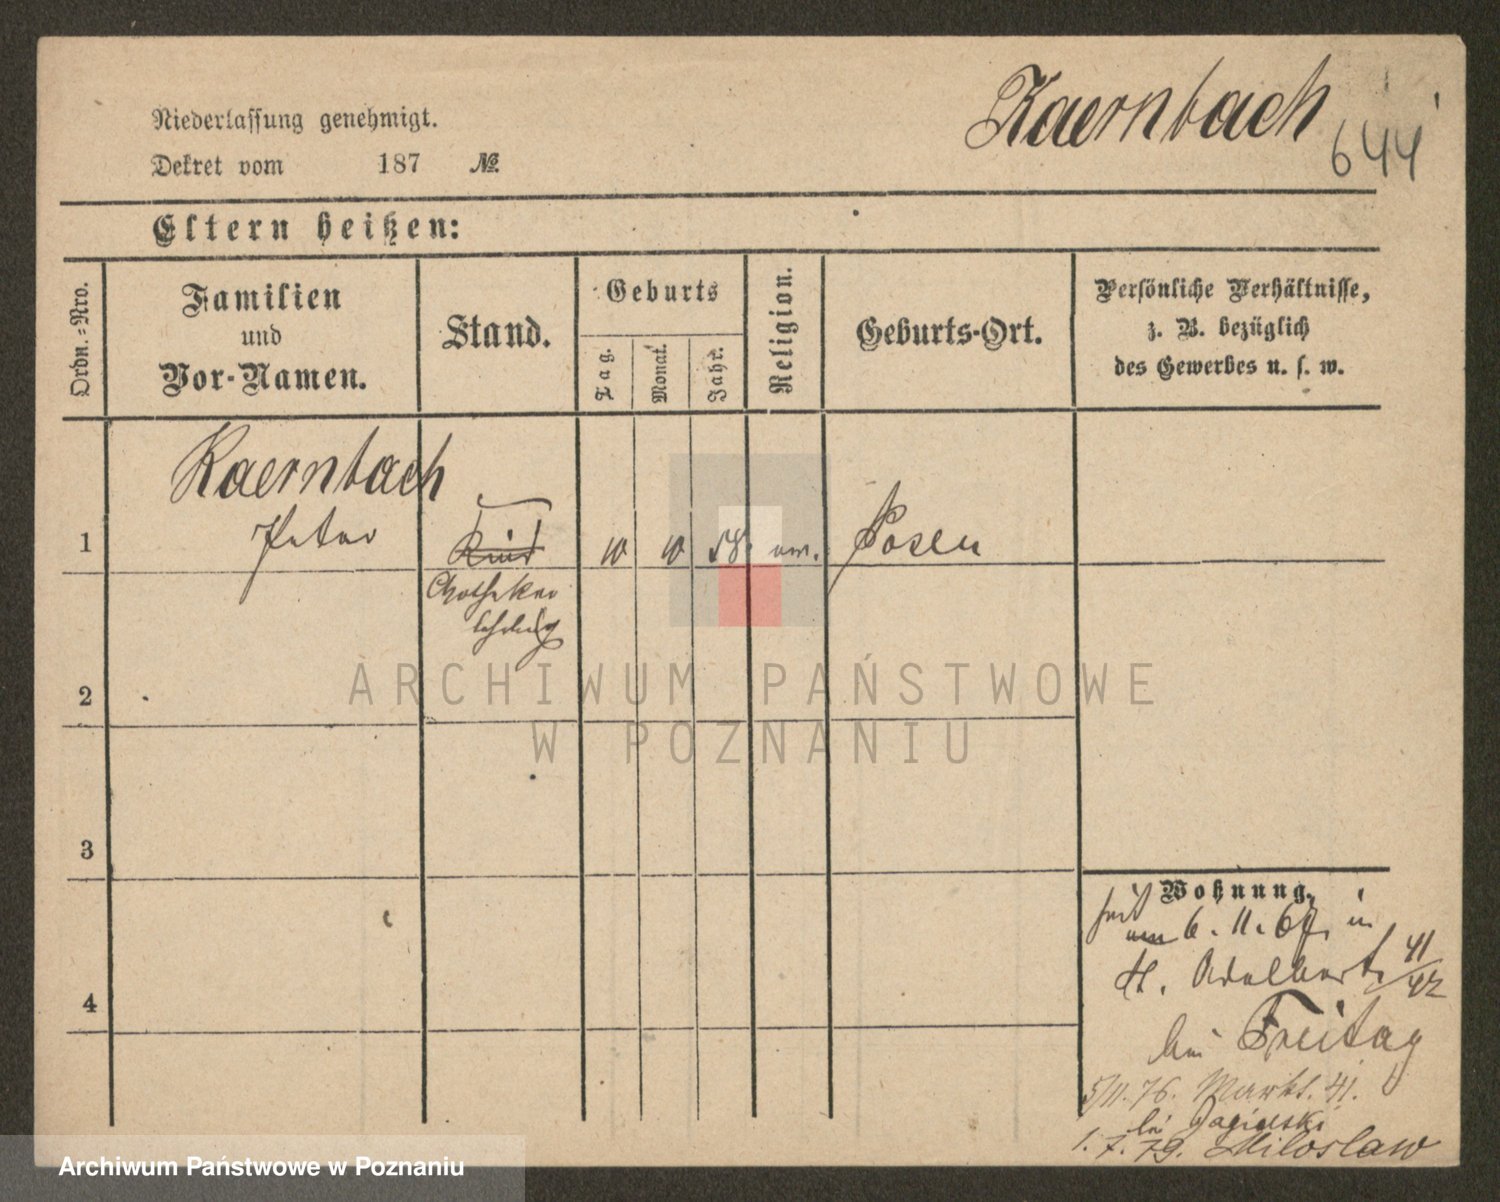 Kaernbach
644
Niederlassung genehmigt.
Dekret vom 187 №
Eltern heißen:
Ordn.=Nro.
Familien
und
Vor-Namen.
Stand.
Geburts
Tag.
Monat.
Jahr.
Religion.
Geburts-Ort.
Persönliche Verhältnisse,
z. B. bezüglich
des Gewerbes u. s. w.
Kaernbach
1 Peter Kind 10 10 58. Posen
Apotheker
lehrling
2
3
4
Wohnung.
seit
am 6. 11. 67. in
St. Adalbert. 41/42
bei Freitag
5/11. 76. Markt. 41.
bei Jagielski
1. 7. 79. Miloslaw
ARCHIWUM PAŃSTWOWE
W POZNANIU
Archiwum Państwowe w Poznaniu